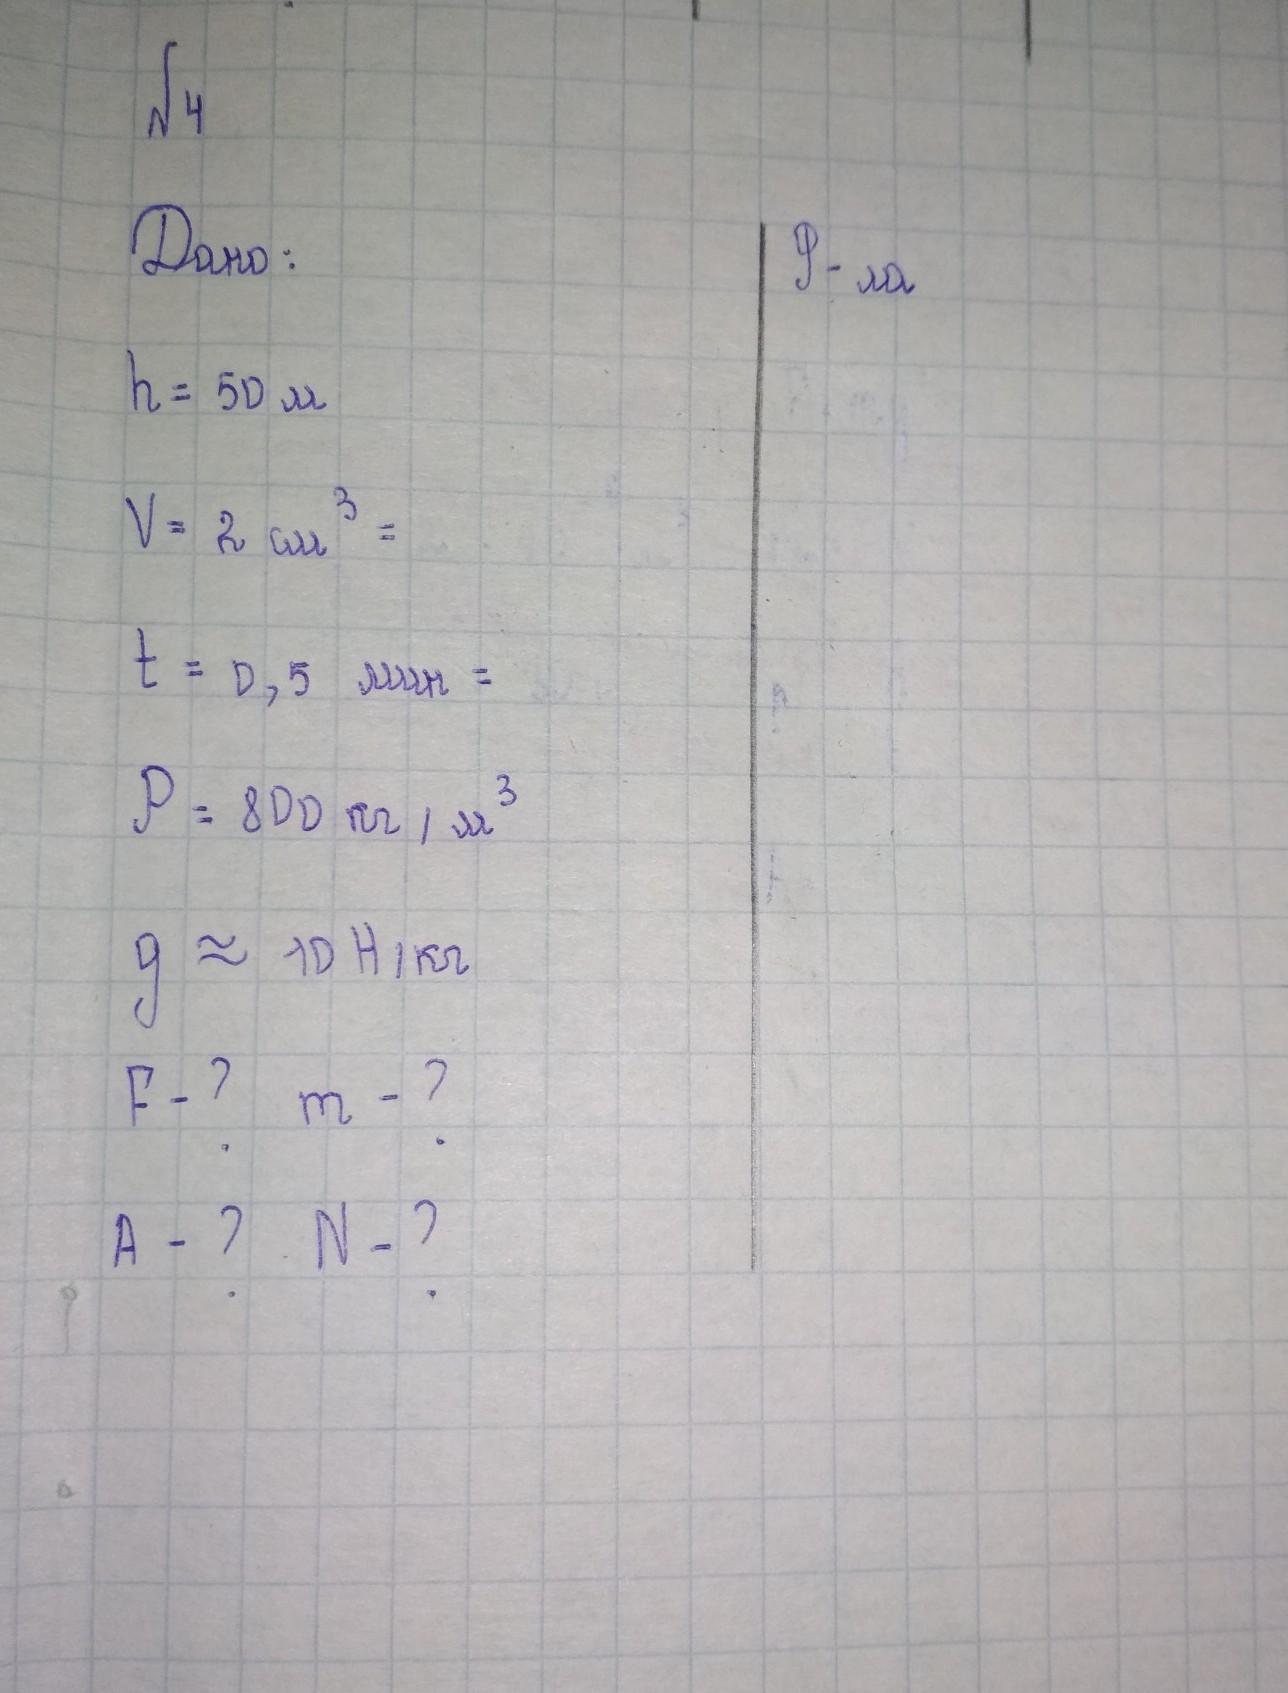 №4
Дано:
Ф-ла
h = 50 м
V = 2 см³ =
t = 0,5 мин =
ρ = 800 кг/м³
g ≈ 10 Н/кг
F - ? m - ?
A - ? N - ?